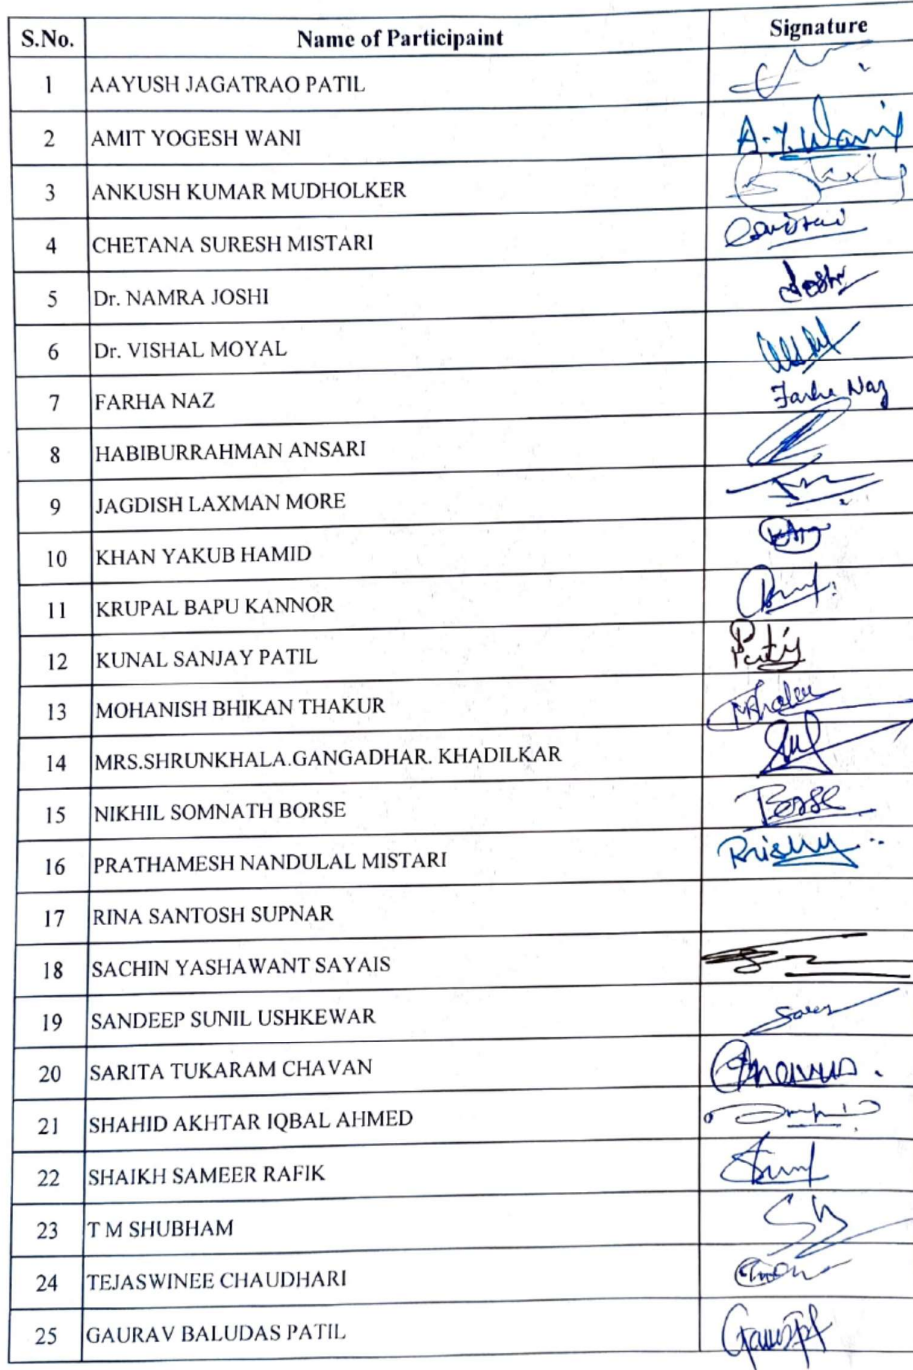 S.No. Name of Participaint Signature
1 AAYUSH JAGATRAO PATIL
2 AMIT YOGESH WANI A.Y.Wani
3 ANKUSH KUMAR MUDHOLKER
4 CHETANA SURESH MISTARI
5 Dr. NAMRA JOSHI Joshi
6 Dr. VISHAL MOYAL
7 FARHA NAZ Farha Naz
8 HABIBURRAHMAN ANSARI
9 JAGDISH LAXMAN MORE
10 KHAN YAKUB HAMID
11 KRUPAL BAPU KANNOR
12 KUNAL SANJAY PATIL
13 MOHANISH BHIKAN THAKUR
14 MRS.SHRUNKHALA.GANGADHAR. KHADILKAR
15 NIKHIL SOMNATH BORSE Borse
16 PRATHAMESH NANDULAL MISTARI
17 RINA SANTOSH SUPNAR
18 SACHIN YASHAWANT SAYAIS
19 SANDEEP SUNIL USHKEWAR
20 SARITA TUKARAM CHAVAN
21 SHAHID AKHTAR IQBAL AHMED
22 SHAIKH SAMEER RAFIK
23 T M SHUBHAM
24 TEJASWINEE CHAUDHARI
25 GAURAV BALUDAS PATIL